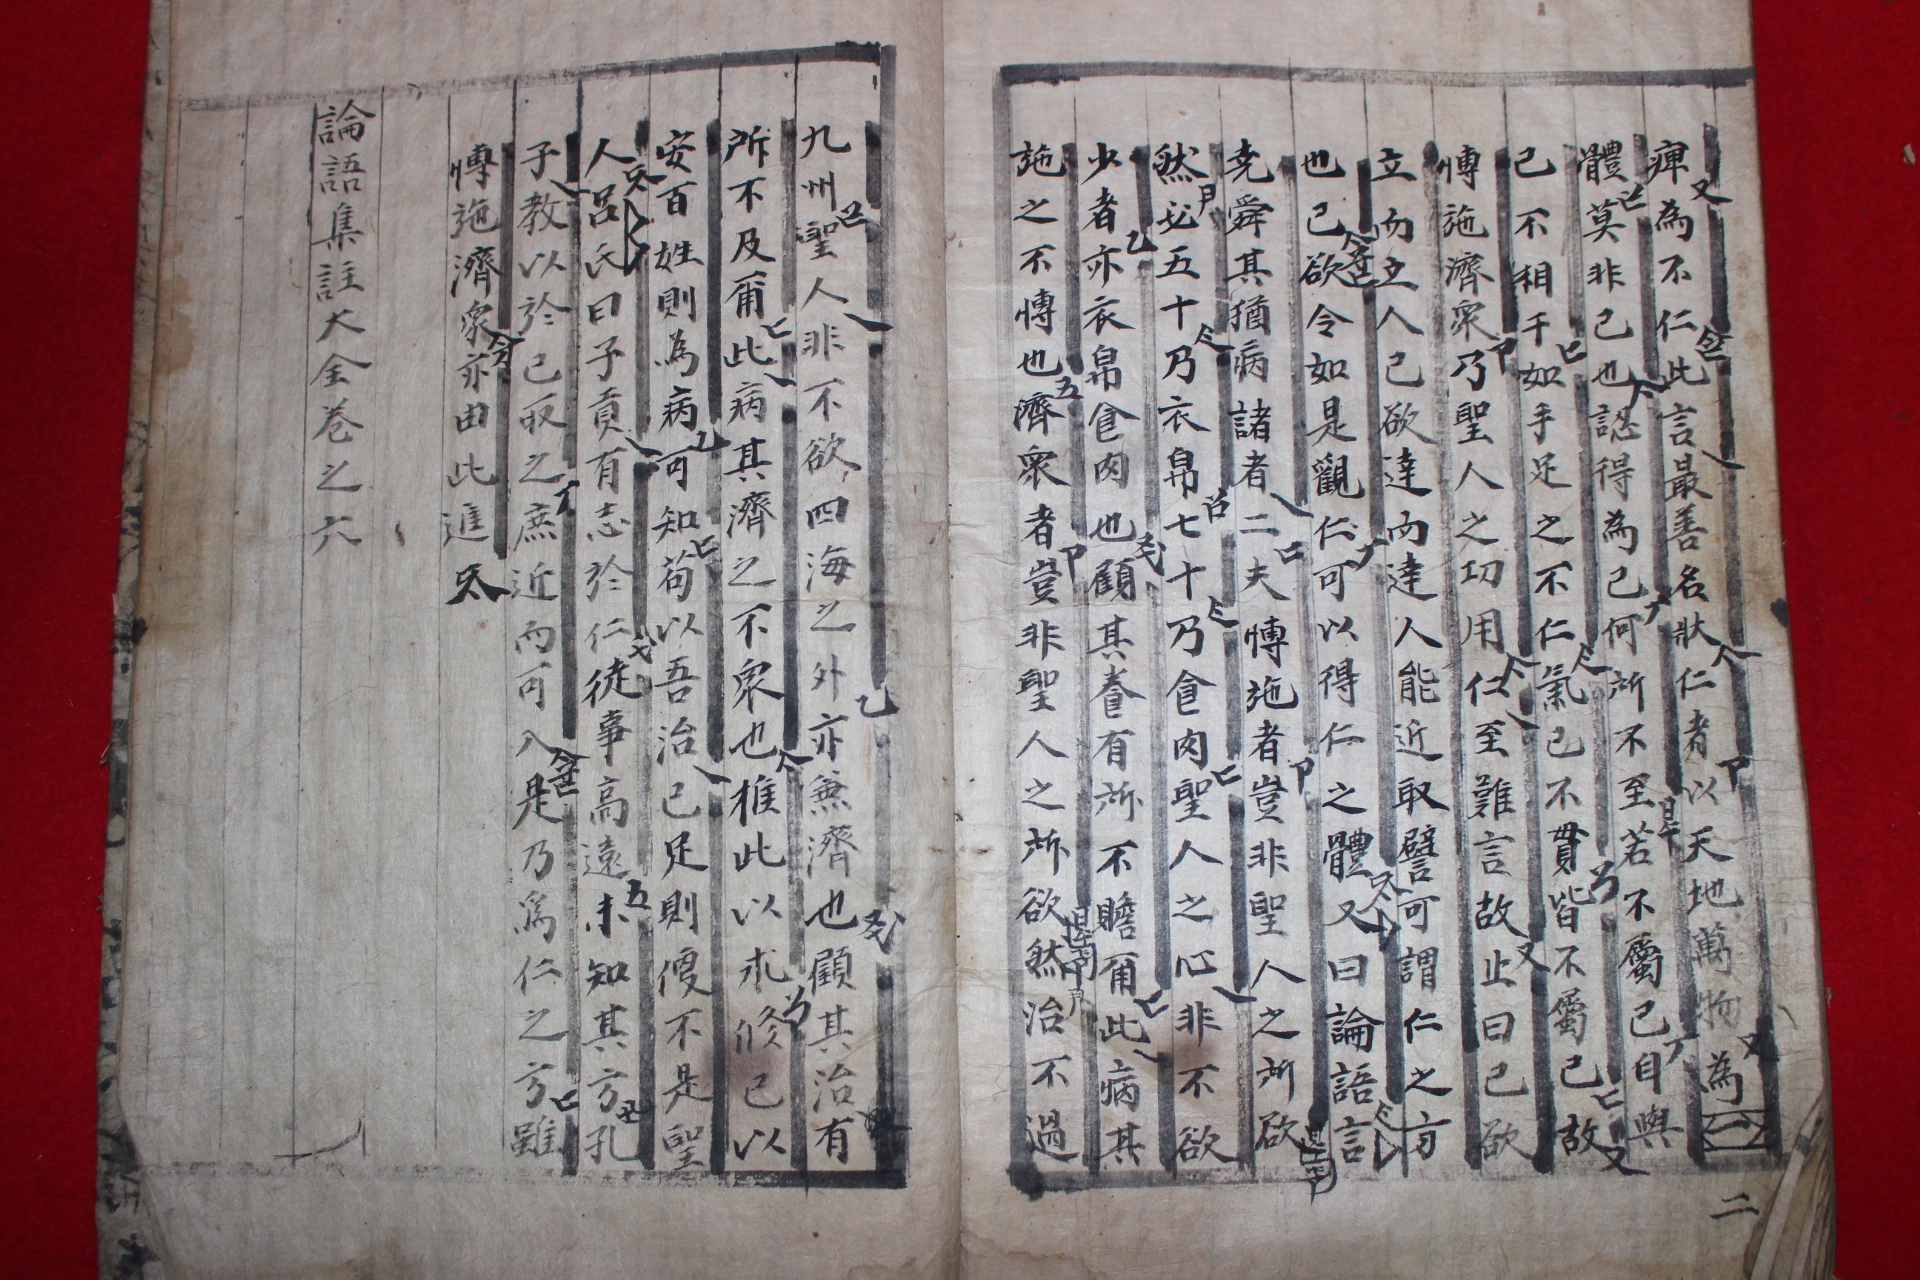 痺為不仁此言最善名狀仁者以天地萬物為一
體莫非己也認得為己何所不至若不屬己自與
己不相干如手足之不仁氣己不貫皆不屬己故
愽施濟衆乃聖人之功用仁至難言故止曰己欲
立而立人己欲達而達人能近取譬可謂仁之方
也已欲令如是觀仁可以得仁之體又曰論語言
堯舜其猶病諸者二夫愽施者豈非聖人之所欲
然必五十乃衣帛七十乃食肉聖人之心非不欲
少者亦衣帛食肉也顧其養有所不贍爾此病其
施之不愽也濟衆者豈非聖人之所欲然治不過
九州聖人非不欲四海之外亦兼濟也顧其治有
所不及爾此病其濟之不衆也推此以求脩己以
安百姓則為病可知苟以吾治已足則便不是聖
人呂氏曰子貢有志於仁徒事高遠未知其方孔
子教以於己取之庶近而可入是乃爲仁之方雖
愽施濟衆亦由此進
論語集註大全卷之六
二